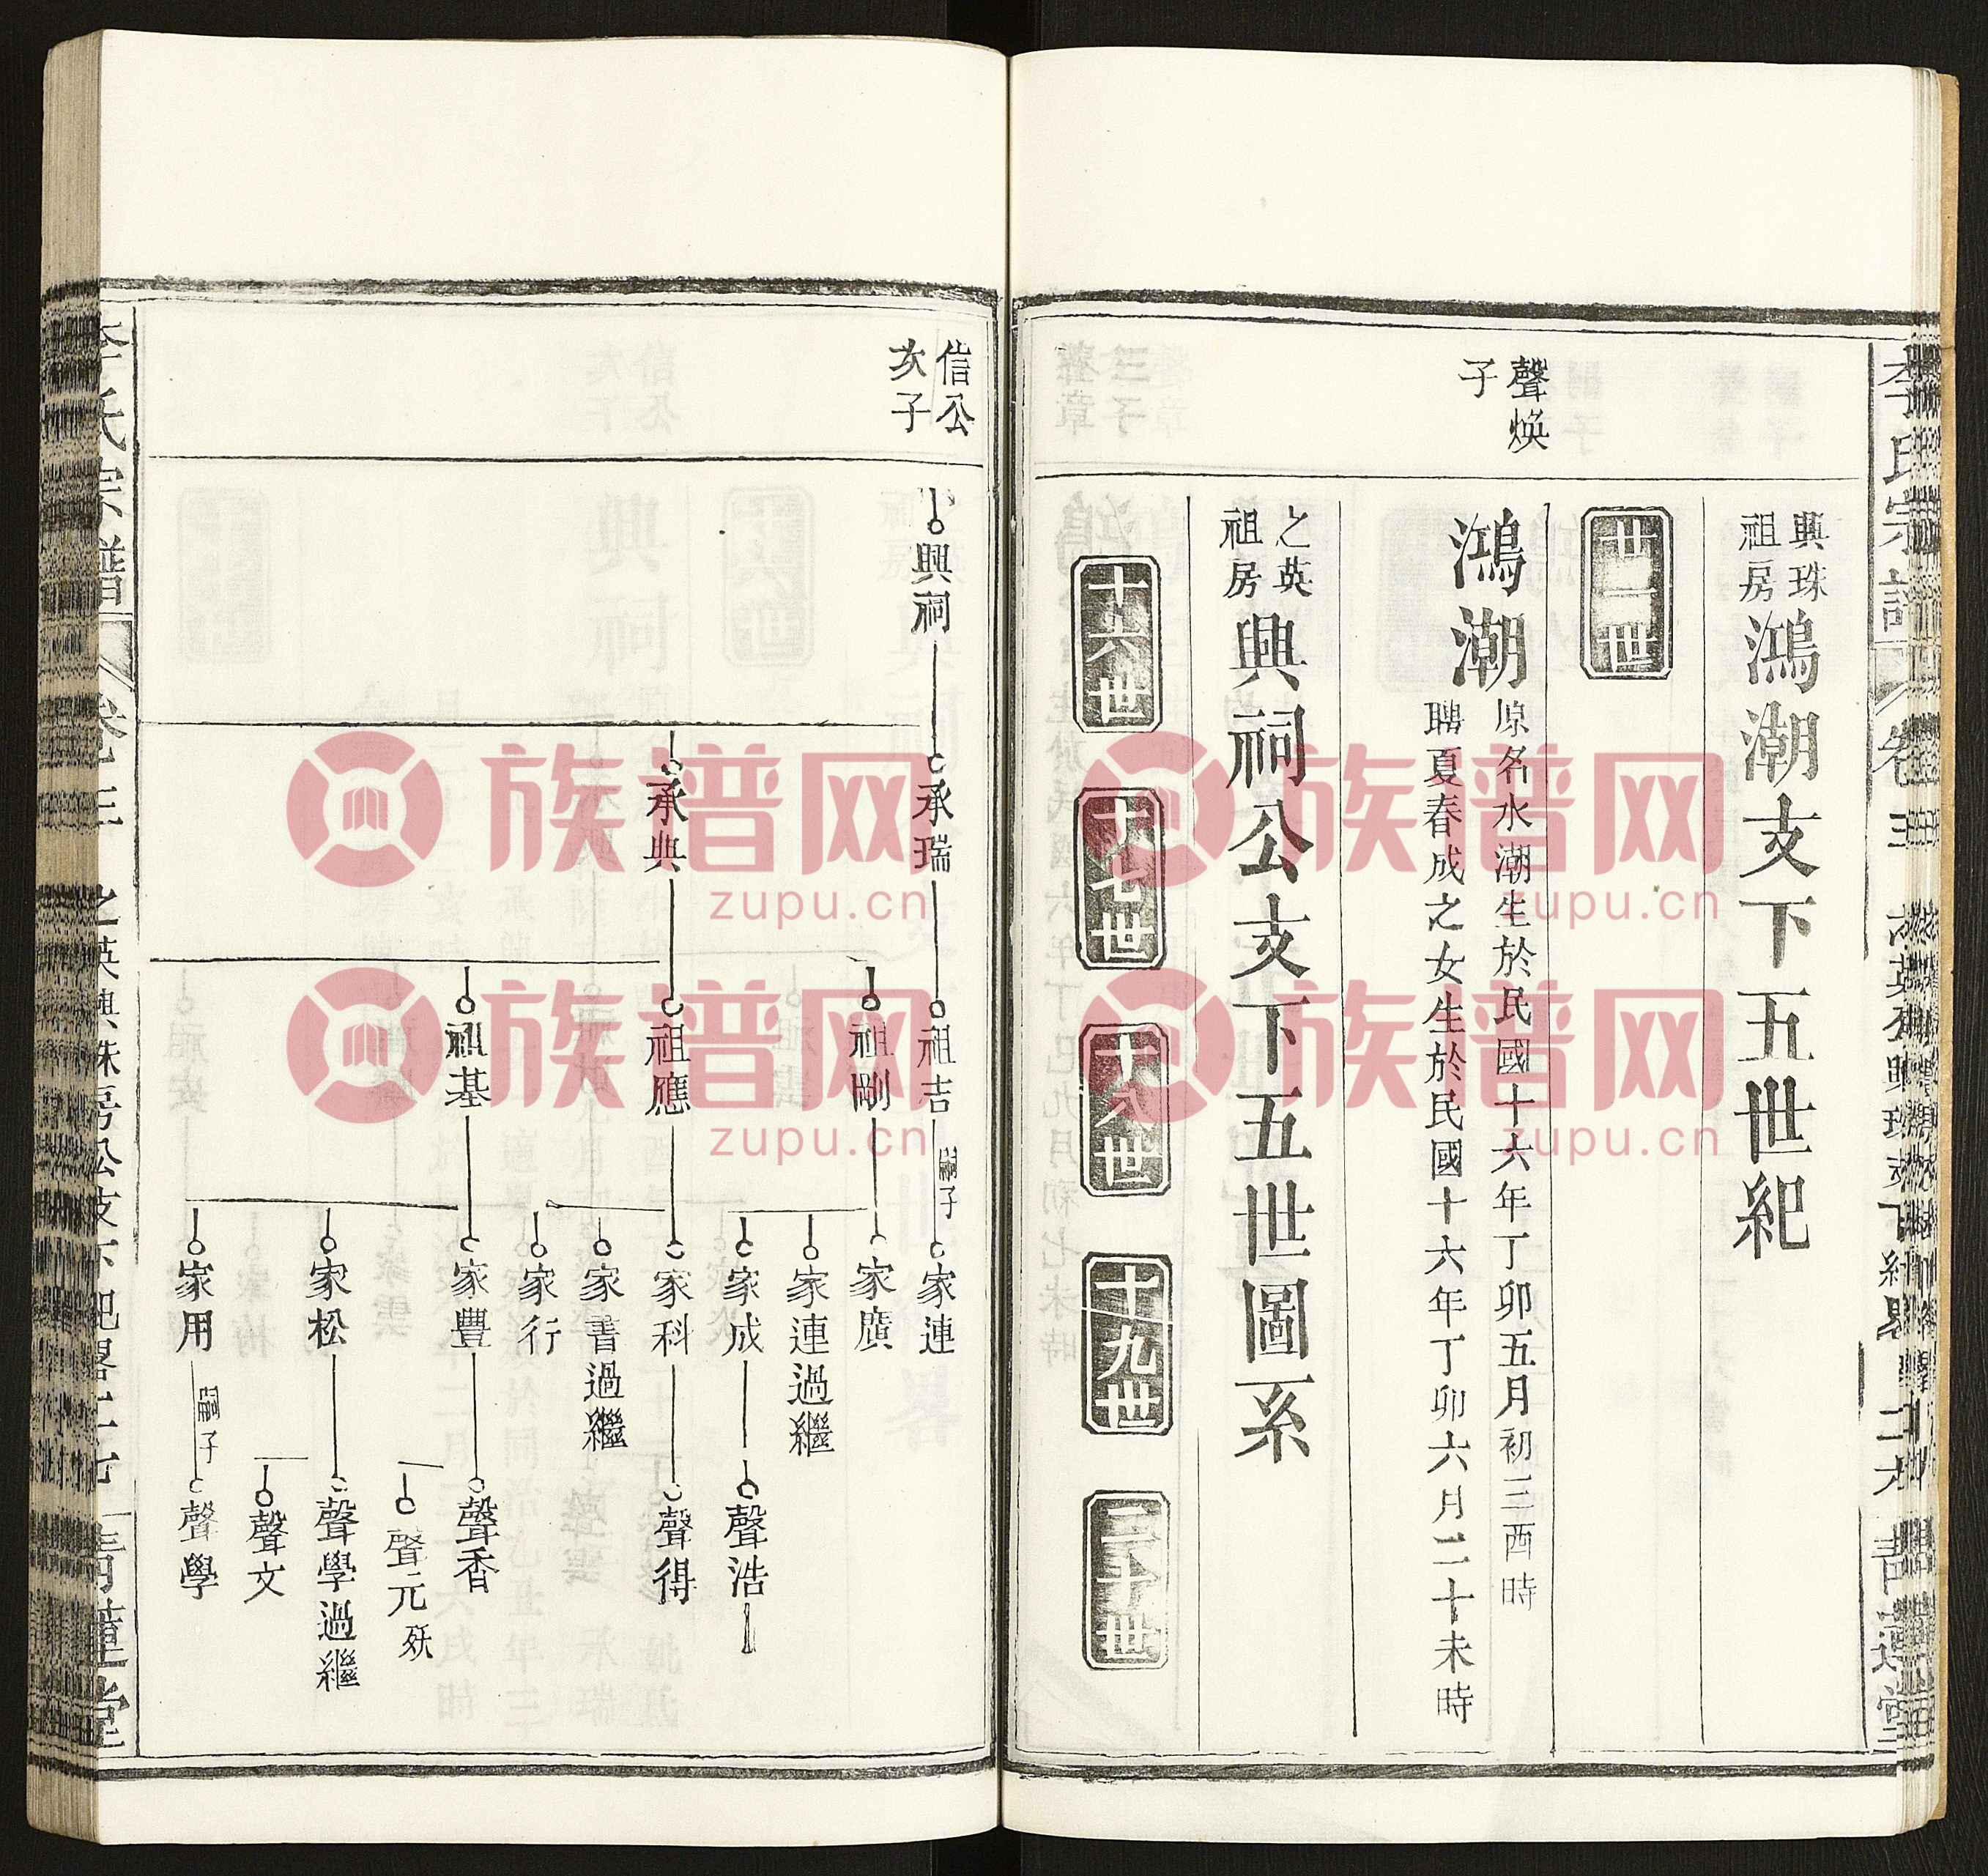 李氏宗譜
卷三
興珠
祖房
鴻潮支下五世紀
廿一世
聲煥
子
鴻潮
原名水潮生於民國十六年丁卯五月初三酉時
聘夏春成之女生於民國十六年丁卯六月二十未時
之英
祖房
興祠公支下五世圖系
十六世
十七世
十八世
十九世
二十世
信公
次子
興祠
承瑞
承典
祖吉
祖剛
祖應
祖基
嗣子
家連
家廣
家連過繼
家成
家科
家書過繼
家行
家豐
家松
家用
嗣子
聲浩
聲得
聲香
聲元 殀
聲學過繼
聲文
聲學
李氏宗譜
卷三
族谱网
zupu.cn
族谱网
zupu.cn
族谱网
zupu.cn
族谱网
zupu.cn